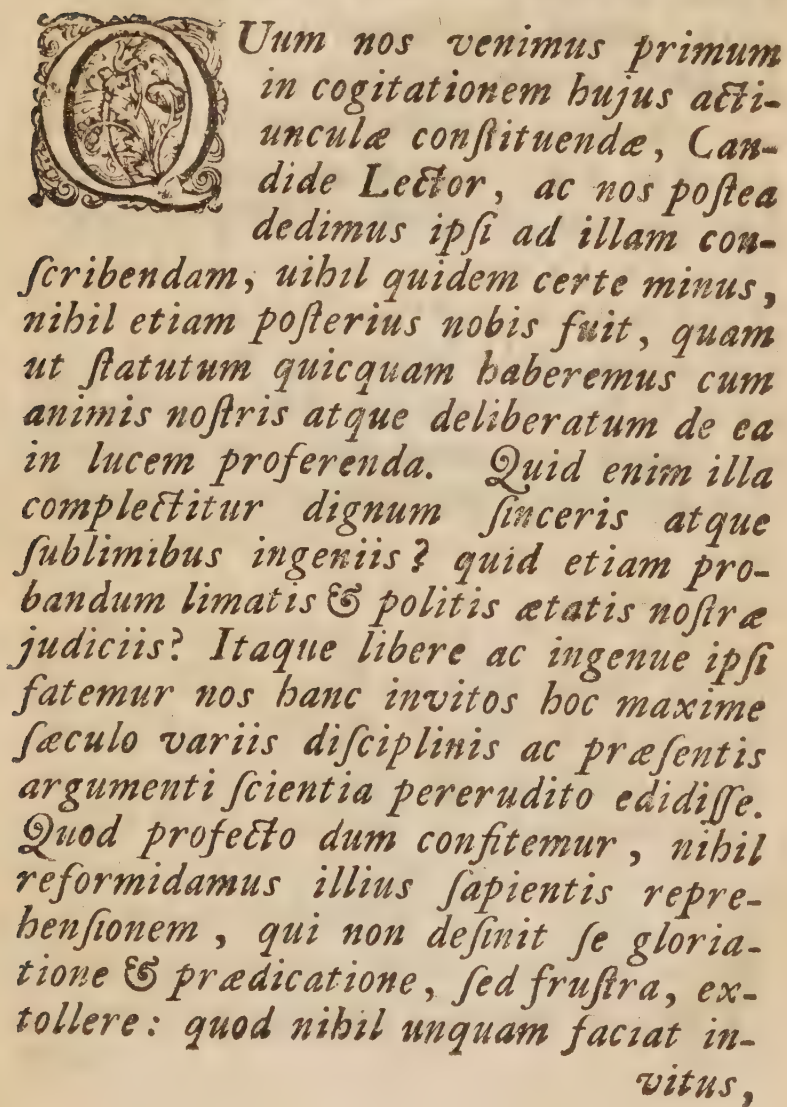 QUum nos venimus primum
in cogitationem hujus acti-
unculæ conſtituendæ, Can-
dide Lector, ac nos poſtea
dedimus ipſi ad illam con-
ſcribendam, uihil quidem certe minus,
nihil etiam poſterius nobis fuit, quam
ut ſtatutum quicquam haberemus cum
animis noſtris atque deliberatum de ea
in lucem proferenda. Quid enim illa
complectitur dignum ſinceris atque
ſublimibus ingeniis? quid etiam pro-
bandum limatis & politis ætatis noſtræ
judiciis? Itaque libere ac ingenue ipſi
fatemur nos hanc invitos hoc maxime
ſæculo variis diſciplinis ac præſentis
argumenti ſcientia pererudito edidiſſe.
Quod profecto dum confitemur, nihil
reformidamus illius ſapientis repre-
henſionem, qui non deſinit ſe gloria-
tione & prædicatione, ſed fruſtra, ex-
tollere: quod nihil unquam faciat in-
vitus,